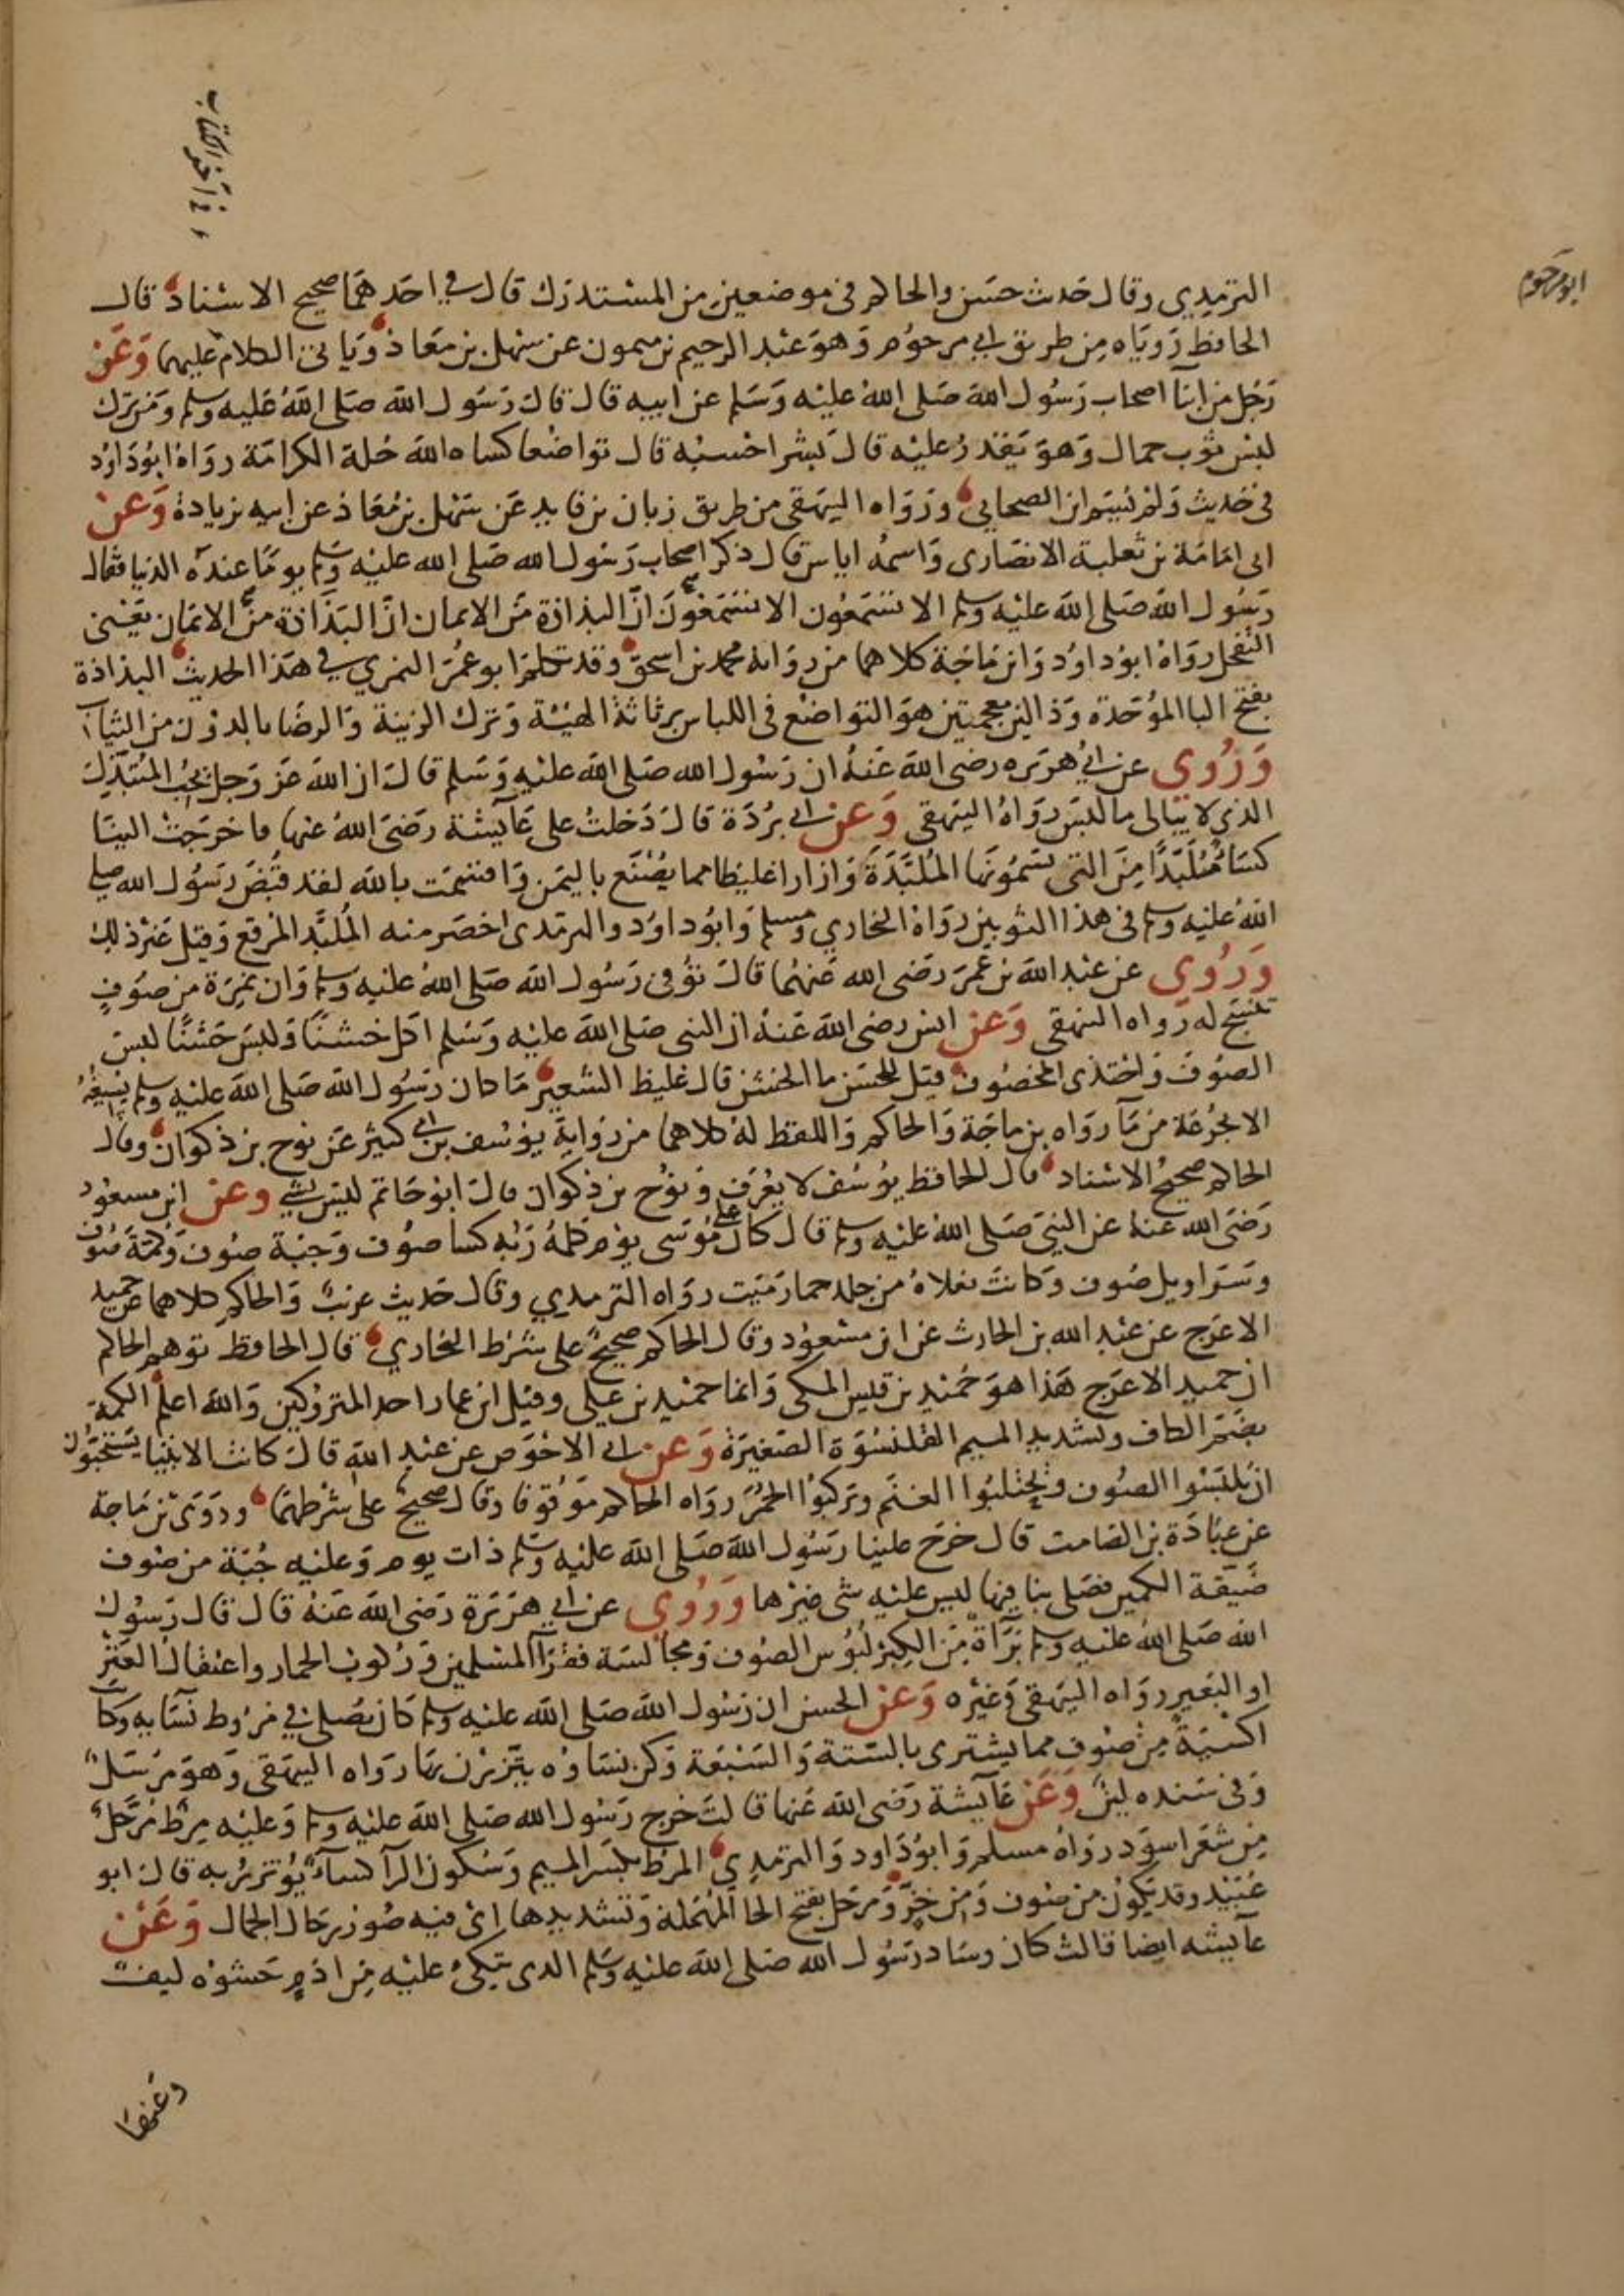 في آخر الكتاب
ابو مرحوم
الترمذي وقال حديث حسن والحاكم في موضعين من المستدرك قال في احدهما صحيح الاسناد قال
الحافظ روياه من طريق ابي مرحوم وهو عبد الرحيم بن ميمون عن سهل بن معاذ وياتي الكلام عليهما وَعَن
رَجُل من ابنا اصحاب رَسُول الله صَلى الله عليه وَسَلم عن ابيه قال قال رَسُول الله صَلى اللهُ عَليه وسلم وَمن ترك
لبس ثوب جمال وَهوَ يَقدرُ عليْه قال بشر احسبُه قال تواضعا كساه الله حُلة الكرامَة روَاهُ ابُو دَاوُد
في حَديث وَلم يُسَم ابن الصحابي ورَوَاه البيهقي من طريق زبان بن فايد عَن سَهل بن مُعَاذ عن ابيه بزيادة وَعَن
ابى امَامَة بن ثعلبة الانصَارى وَاسمُه اياس قال ذكر اصحاب رَسُول الله صَلى الله عليه وسَلم يومًا عندَه الدنيا فقال
رَسُول الله صَلى الله عليْه وسلم الا تسْمَعُون الا تسْمَعُونَ انَّ البذاذة مَن الايمان انَّ البَذَاذة مِنَ الايمَان يَعْنى
التقحل روَاهُ ابوُ داوُد وَابن مَاجَة كلاهما من رواية محمد بن اسحق وقد تكلم ابو عُمَر النمري في هَذا الحديث البذاذة
بفتح البا الموُحَدة وَذالين معجمتين هوَ التوَاضُع فى اللباس برثاثة الهَيْئة وَترك الزينة وَالرضَا بالدوْن من الثياب
وَرُوِي عن ابي هُرَيره رضى الله عَنهُ ان رَسُول الله صَلى الله عليْه وَسَلم قالَ ان الله عَز وَجل يُحبُ المُتبَذِّلَ
الذي لا يبَالى ما لبَسَ روَاهُ البَيهقى وَعن ابي برُدَة قالَ دَخلتُ على عَآيشة رَضىَ اللهُ عَنها فاخرَجَتْ الينَا
كسَاءً مُلبَّدًا مِنَ التى يسَمُونَهَا المُلَبَّدَةَ وَازارا غليظا مما يصُنَع باليمَن وَاقسَمَت بالله لقد قبُضَ رَسُول الله صلى
اللهُ عليه وسلم فى هذا الثوبين روَاهُ البخاري وَمسلم وَابوُ داوُد والترمذى اخصَر منه المُلبَّد المُرقع وَقيل غَير ذلك
وَرُوِي عن عَبْد الله بن عُمَرَ رَضى الله عَنهُما قالَ توُفى رَسُول الله صَلى اللهُ عليْه وسلم وَان نَمِرَة من صُوفٍ
تنسَجُ له رواه البيهقى وَعن انس رضى الله عَنهُ ان النبي صَلى الله عليْه وَسَلم اكَل خَشنًا وَلبسَ خَشنًا لبسَ
الصُوفَ وَاحتذى المخصُوف قيل للحَسَن ما الخشن قال غليظ الشعير مَا كان رَسُول الله صَلى الله عليْه وسلم يسيغهُ
الا بجُرعَة من مآ روَاه بن ماجَة وَالحاكم وَاللفظ لهُ كلاهما من رَوَاية يوُسُف بن ابي كثير عَن نوح بن ذكوَان وقال
الحاكم صَحيحُ الاسْناد قال الحافظ يوُسُف لا يعُرَف وَنوُح بن ذكوان قالَ ابوُ حَاتم ليسَ بشيٍ وعن ابن مسعُود
رَضىَ الله عنهُ عن النبىِ صَلى اللهُ عليه وسلم قالَ كان على مُوسَى يوْم كلمهُ رَبُه كسا صوُف وَجبَة صُوف وَكُمَّة صُوف
وسَرَاويل صُوف وَكانتَ نعلاهُ من جلد حمار مَيَت روَاه الترمذي وقال حَديث غريبٌ وَالحاكم كلاهما عن حميد
الاعرَج عن عَبْد الله بن الحارث عن ابن مسْعُود وقال الحاكم صحيحٌ على شرْط البخاري قال الحافظ توهم الحاكم
ان حميد الاعرَج هَذا هوَ حُميد بن قيس المكي وَانما حميد بن علي وقيل ابن عمار احد المتروكين وَالله اعلم الكمة
بضَم الكاف وتشديد الميم القلنسُوَة الصَغيرَة وَعن ابي الاحْوَص عن عَبْد الله قالَ كانت الانبيَا يَسْتحبُّونَ
ان يَلبَسُوا الصُوف وَيحتلبُوا الغنَم ويرَكبوُا الحُمُر روَاه الحَاكم موَقوُفا وقال صَحيحٌ على شرْطهمَا ورَوَى بن مَاجة
عن عبَادَة بن الصَامت قال خرَجَ علينا رَسُول الله صَلى الله عليْه وسَلم ذات يوم وَعليْه جُبَّة من صُوف
ضَيقة الكمين فصَلى بنا فيها ليس عليه شى غيرها وَرُوِي عن ابي هُرَيرَة رَضى الله عَنهُ قال قال رَسُول
الله صَلى اللهُ عليه وسلم برَآةٌ مِنَ الكِبر لبُوُس الصُوف وَمجالسَة فقرَآ المسْلمين وَرُكوب الحمار واعتقال العَنز
او البَعير روَاه البَيهقي وَغيْره وَعن الحسن ان رَسُول الله صَلى الله عليْه وسلم كان يُصَلى في مروط نسَآيه وكانت
اكسيَةً مِن صُوف مما يشترى بالسَتة وَالسَبْعَة وَكن نسَاوُه يتزرْن بهَا روَاه البيهقى وَهوَ مرْسَلٌ
وَفى سَنده لينٌ وَعَن عَآيشة رَضى الله عَنها قالتَ خرج رَسُول الله صَلى الله عليْه وسلم وَعليْه مِرْط مُرَحَّلٌ
مِن شعَر اسوَد روَاهُ مسلم وَابوُ دَاود وَالترمذي المرط بكسر الميم وَسُكون الرآ كسآءٌ يُؤتزرُ به قالَ ابو
عُبَيْد وقد يكوُن من صُوف وَمن خزٍّ وَمُرحَل بفتح الحا المهُمَلة وَتشديدها اى فيه صُوَر رحَال الجمال وَعَن
عآيشه ايضا قالت كان وسَاد رسُول الله صَلى الله عليْه وَسَلم الذى يتَّكىُ عليْه مِن اَدَمٍ حَشوُه ليفٌ
وعنها